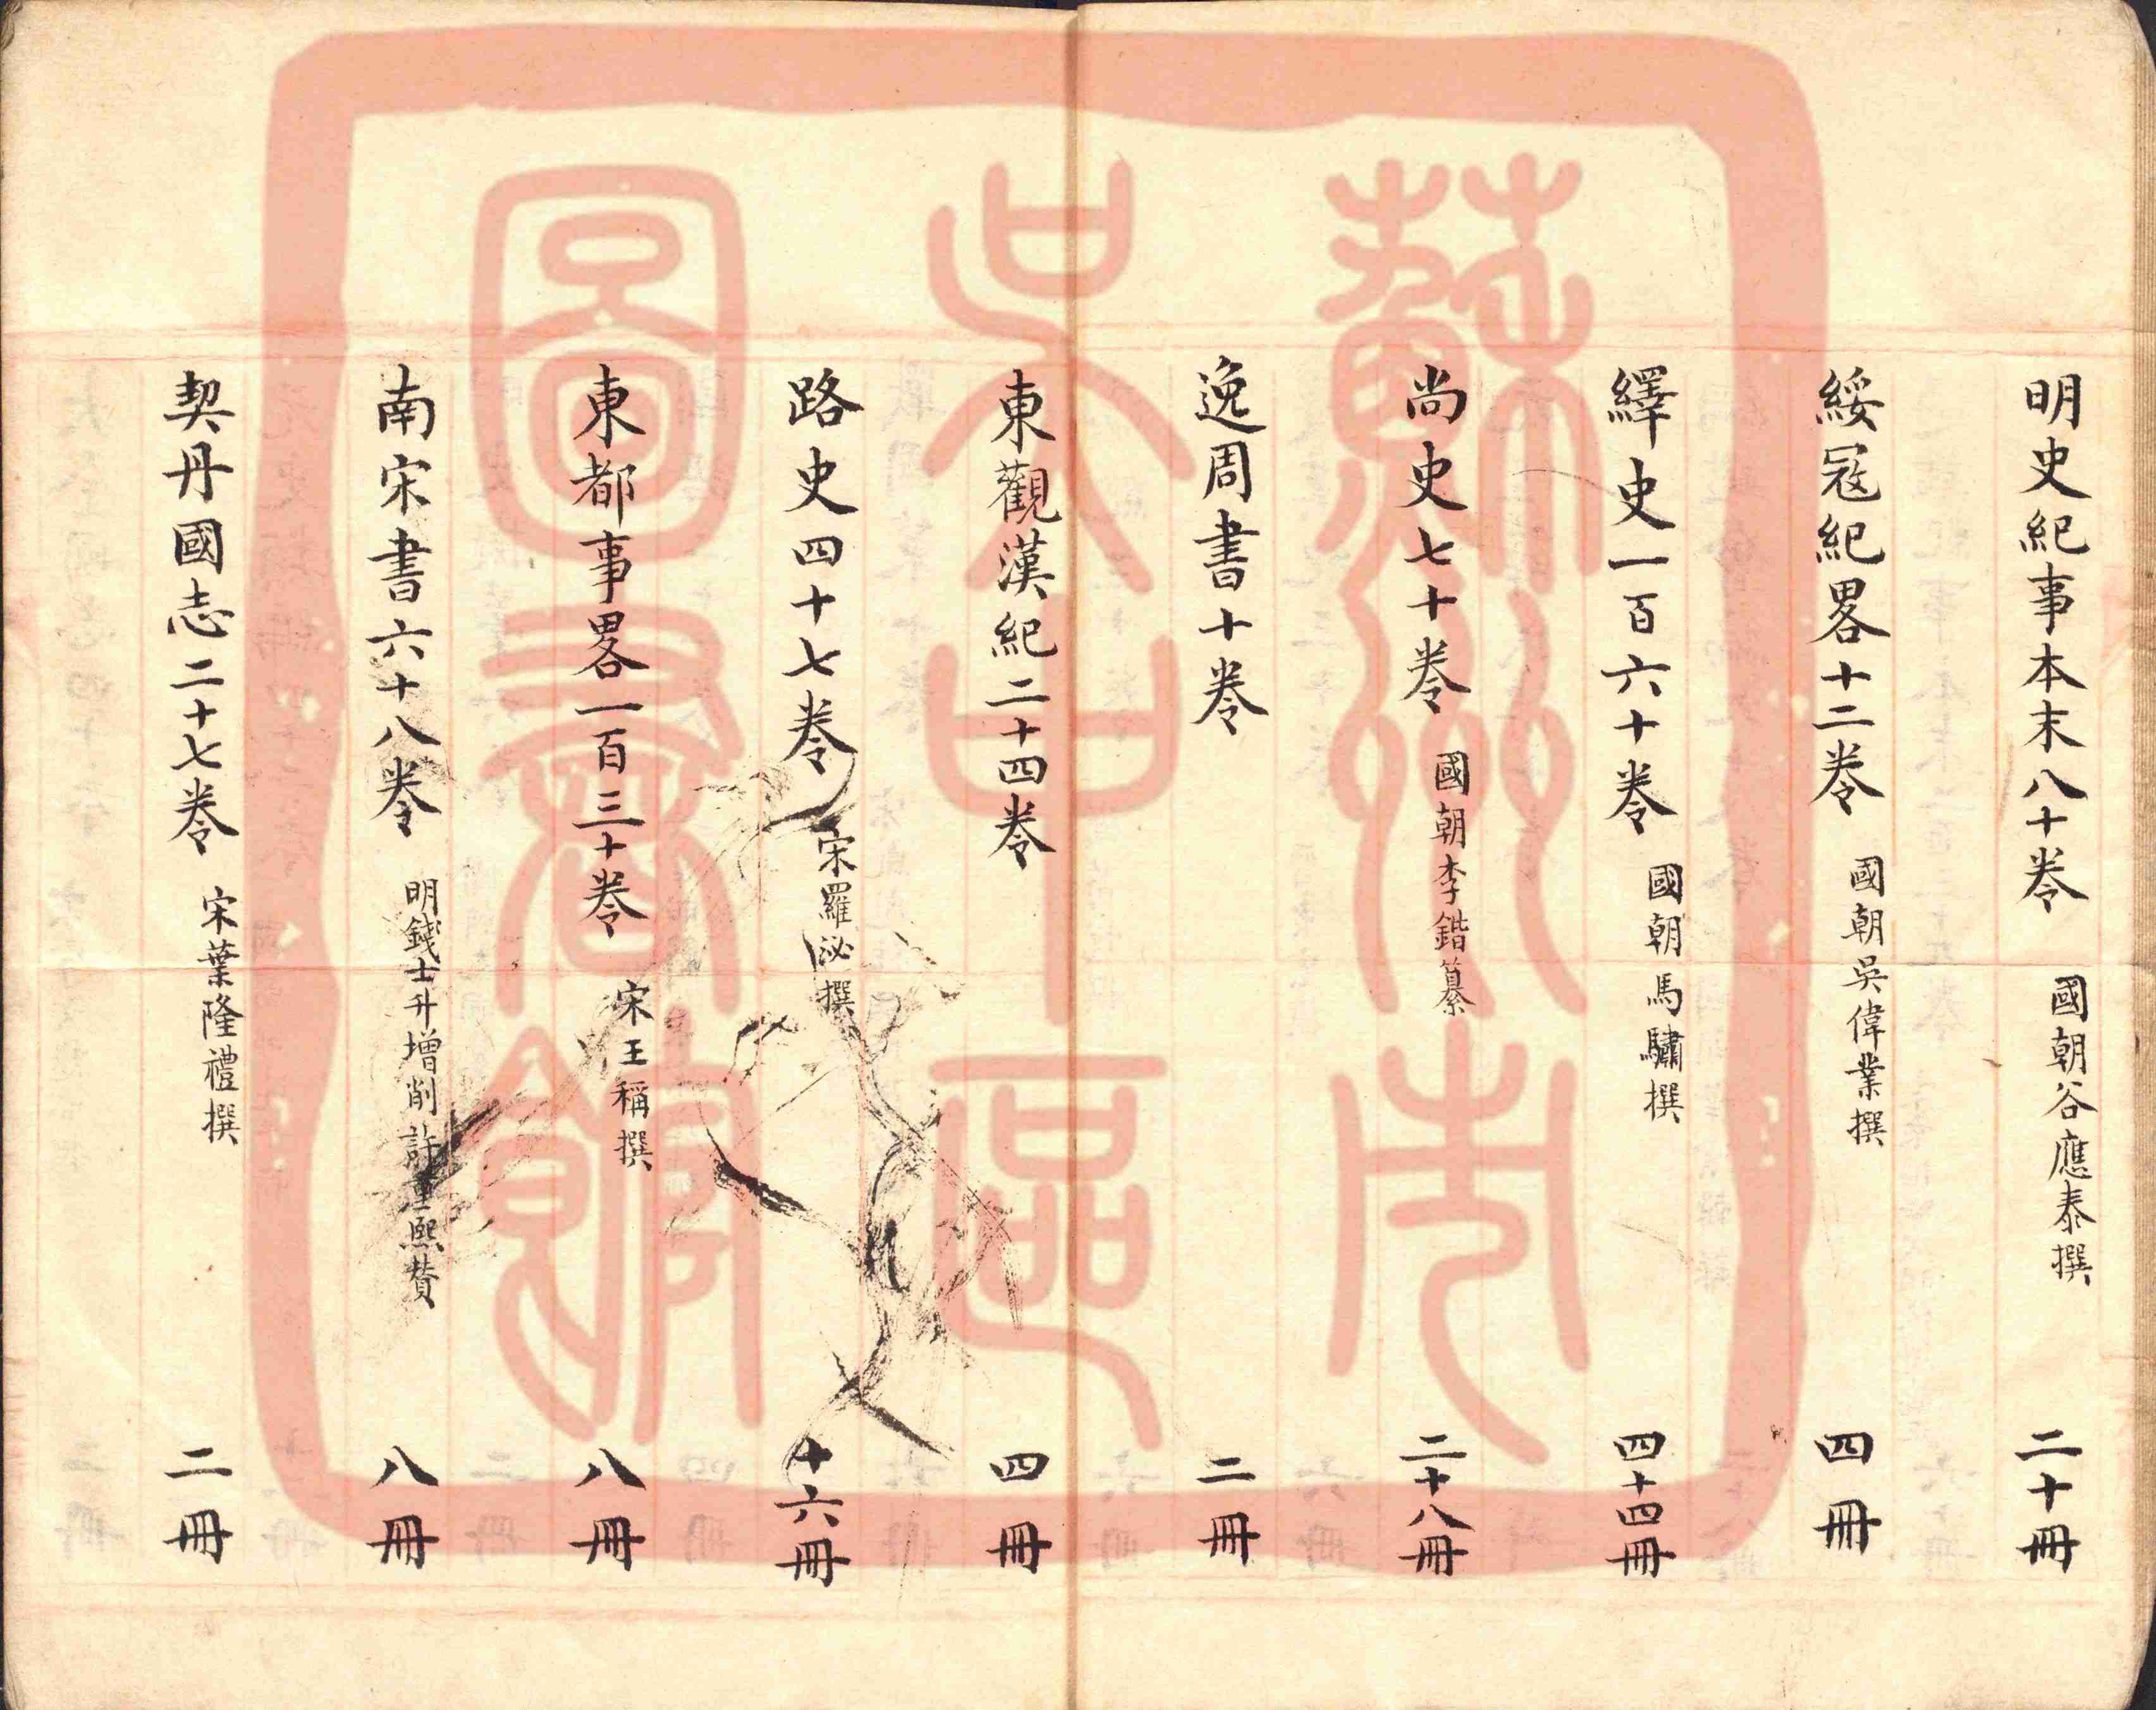 明史紀事本末八十卷 國朝谷應泰撰 二十冊
綏寇紀畧十二卷 國朝吳偉業撰 四冊
繹史一百六十卷 國朝馬驌撰 四十四冊
尚史七十卷 國朝李鍇纂 二十八冊
逸周書十卷 二冊
東觀漢紀二十四卷 四冊
路史四十七卷 宋羅泌撰 十六冊
東都事畧一百三十卷 宋王稱撰 八冊
南宋書六十八卷 明錢士升增削許重熙贊 八冊
契丹國志二十七卷 宋葉隆禮撰 二冊
蘇州市
吳中區
圖書館